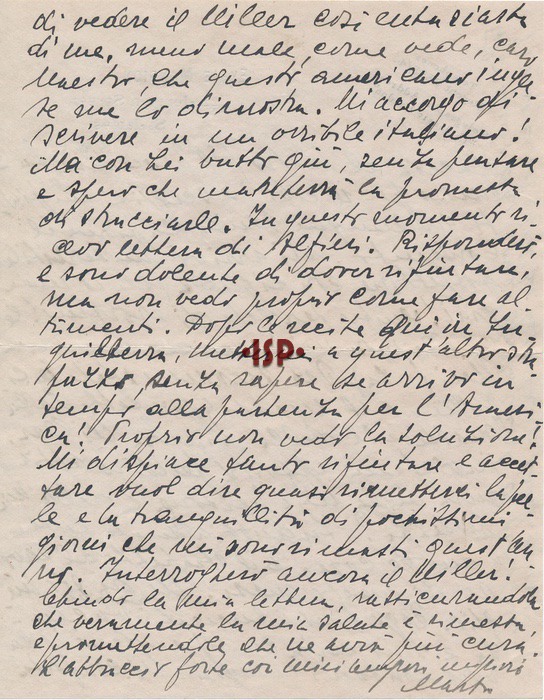 di vedere il Miller così entusiasta
di me, meno male, come vede, caro
Maestro, che questo americano ingle
se me lo dimostra. Mi accorgo di
scrivere in un orribile italiano!
Ma con Lei butto giù, senza pensare
e spero che manterrà la promessa
di stracciarle. In questo momento ri-
cevo lettera di Alfieri. Risponderò,
e sono dolente di dover rifiutare,
ma non vedo proprio come fare al
trimenti. Dopo le recite qui in In
ghilterra, mettermi a quest'altro stra
pazzo, senza sapere se arrivo in
tempo alla partenza per l'Ameri
ca! Proprio non vedo la soluzione!
Mi dispiace tanto rifiutare e accet
tare vuol dire quasi rimetterci la pel
le e la tranquillità di pochissimi
giorni che mi sono rimasti quest'an
no. Interrogherò ancora il Miller!
Chiudo la mia lettera, rassicurandola
che veramente la mia salute è rimessa,
e promettendole che ne avrò più cura.
L'abbraccio forte coi miei auguri migliori
ISP